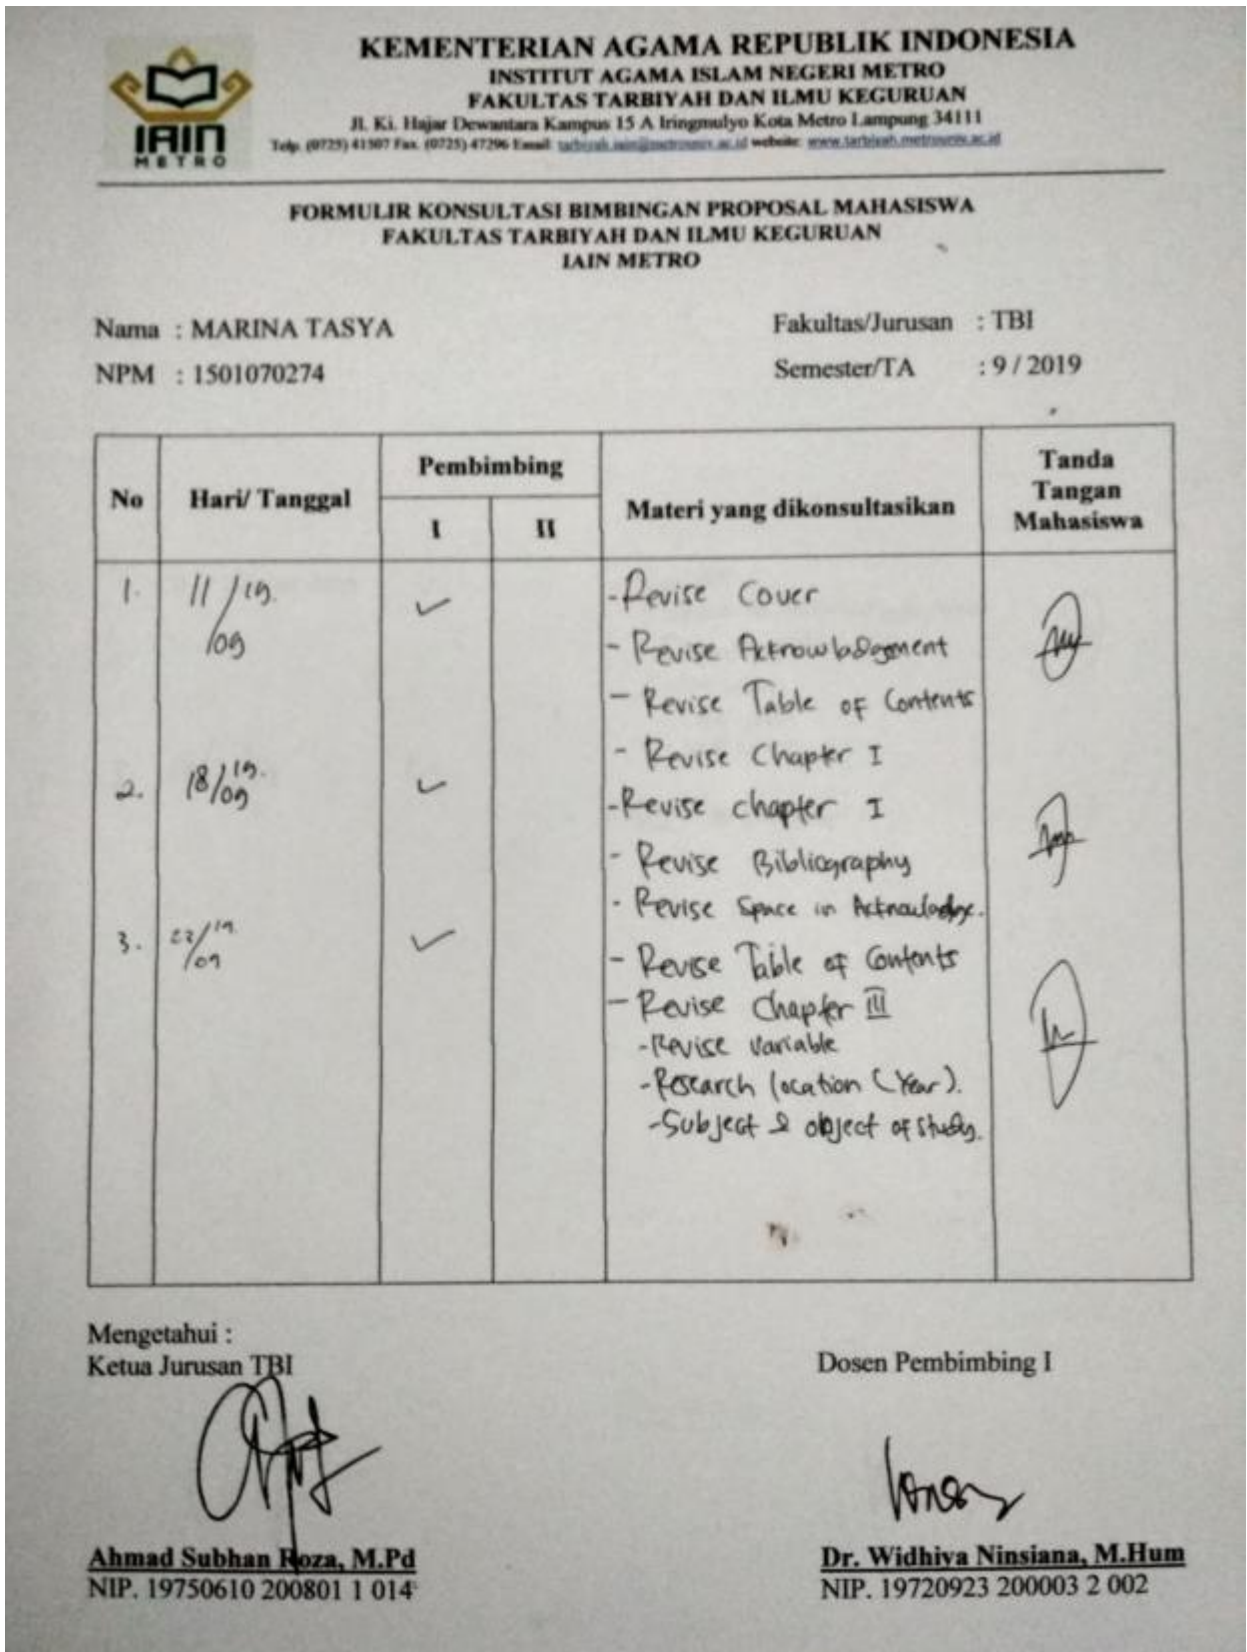 IAIN
METRO
KEMENTERIAN AGAMA REPUBLIK INDONESIA
INSTITUT AGAMA ISLAM NEGERI METRO
FAKULTAS TARBIYAH DAN ILMU KEGURUAN
Jl. Ki. Hajar Dewantara Kampus 15 A Iringmulyo Kota Metro Lampung 34111
Telp. (0725) 41507 Fax. (0725) 47296 Email: tarbiyah.iain@metrouniv.ac.id website: www.tarbiyah.metrouniv.ac.id
FORMULIR KONSULTASI BIMBINGAN PROPOSAL MAHASISWA
FAKULTAS TARBIYAH DAN ILMU KEGURUAN
IAIN METRO
Nama : MARINA TASYA
Fakultas/Jurusan : TBI
NPM : 1501070274
Semester/TA : 9 / 2019
No
Hari/ Tanggal
Pembimbing
I
II
Materi yang dikonsultasikan
Tanda
Tangan
Mahasiswa
1. 11/19. /09
- Revise Cover
- Revise Acknowladgement
- Revise Table of Contents
- Revise Chapter I
2. 18/19. /09
- Revise chapter I
- Revise Bibliography
- Revise Space in
3. /19. /09
- Revise Table of Contents
- Revise Chapter III
- Revise Variable
- Research location (Year).
- Subject & object of study.
Mengetahui :
Ketua Jurusan TBI
Dosen Pembimbing I
Ahmad Subhan Roza, M.Pd
NIP. 19750610 200801 1 014
Dr. Widhiya Ninsiana, M.Hum
NIP. 19720923 200003 2 002